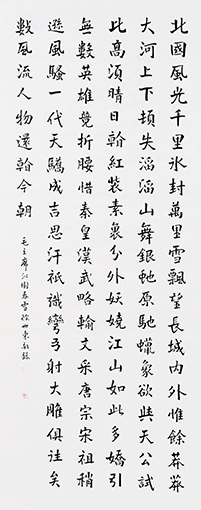 北國風光千里氷封萬里雪飄望長城内外惟餘莽莽
大河上下頓失滔滔山舞銀虵原馳蠟象欲與天公試
比高須晴日看紅裝素裹分外妖嬈江山如此多嬌引
無數英雄競折腰惜秦皇漢武略輸文采唐宗宋祖稍
遜風騷一代天驕成吉思汗祇識彎弓射大雕俱往矣
數風流人物還看今朝
毛主席沁園春雪